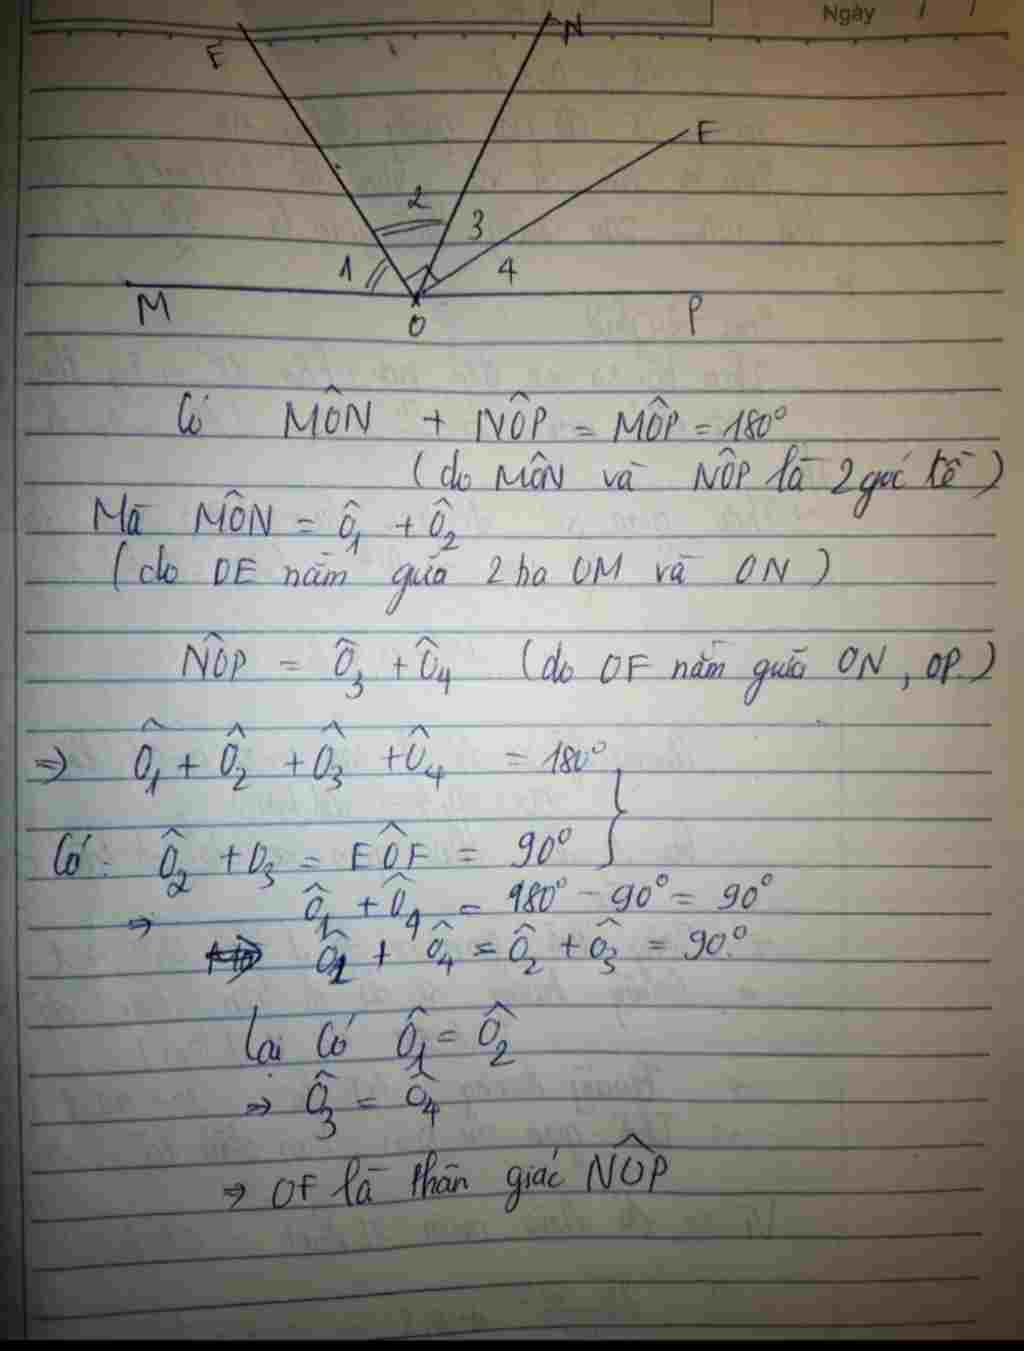 Ngày / /
E N
F
2
3
1 4
M O P
Có MÔN + NÔP = MÔP = 180°
(do MÔN và NÔP là 2 góc kề)
Mà MÔN = Ô1 + Ô2
(do OE nằm giữa 2 tia OM và ON)
NÔP = Ô3 + Ô4 (do OF nằm giữa ON, OP.)
⇒ Ô1 + Ô2 + Ô3 + Ô4 = 180°
Có: Ô2 + O3 = EÔF = 90°
⇒ Ô1 + Ô4 = 180° - 90° = 90°
Ô1 + Ô4 = Ô2 + Ô3 = 90°.
Lại có Ô1 = Ô2
⇒ Ô3 = Ô4
⇒ OF là phân giác NÔP